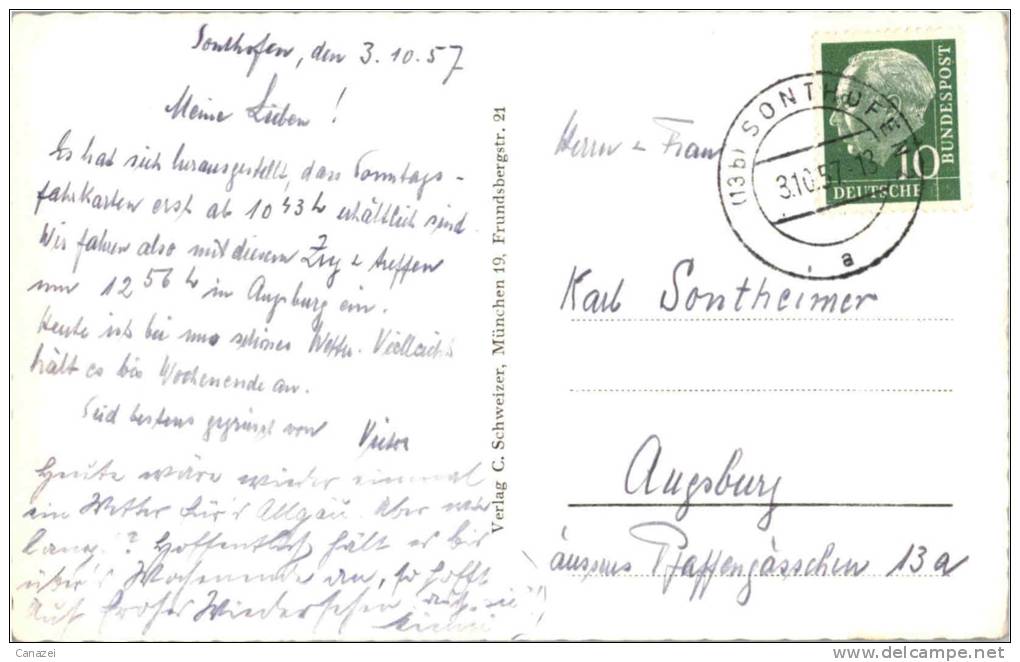 Sonthofen, den 3.10.57
Meine Lieben!
Es hat sich herausgestellt, dass Sonntags-
fahrkarten erst ab 10 43 h erhältlich sind.
Wir fahren also mit diesem Zug & treffen
um 12 56 h in Augsburg ein.
Heute ist bei uns schönes Wetter. Vielleicht
hält es bis Wochenende an.
Seid bestens gegrüsst von
Heute wäre wieder einmal
ein Wetter für's Allgäu. Aber wie
lang? Hoffentlich hält es bis
über's Wochenende an, so hofft
Auf frohes Wiedersehen
Verlag C. Schweizer, München 19, Frundsbergstr. 21
Herrn & Frau
Karl Sontheimer
Augsburg
äusseres Pfaffengässchen 13a
(13b) SONTHOFEN
3.10.57-13
a
10
DEUTSCHE
BUNDESPOST
Canazei
www.delcampe.net